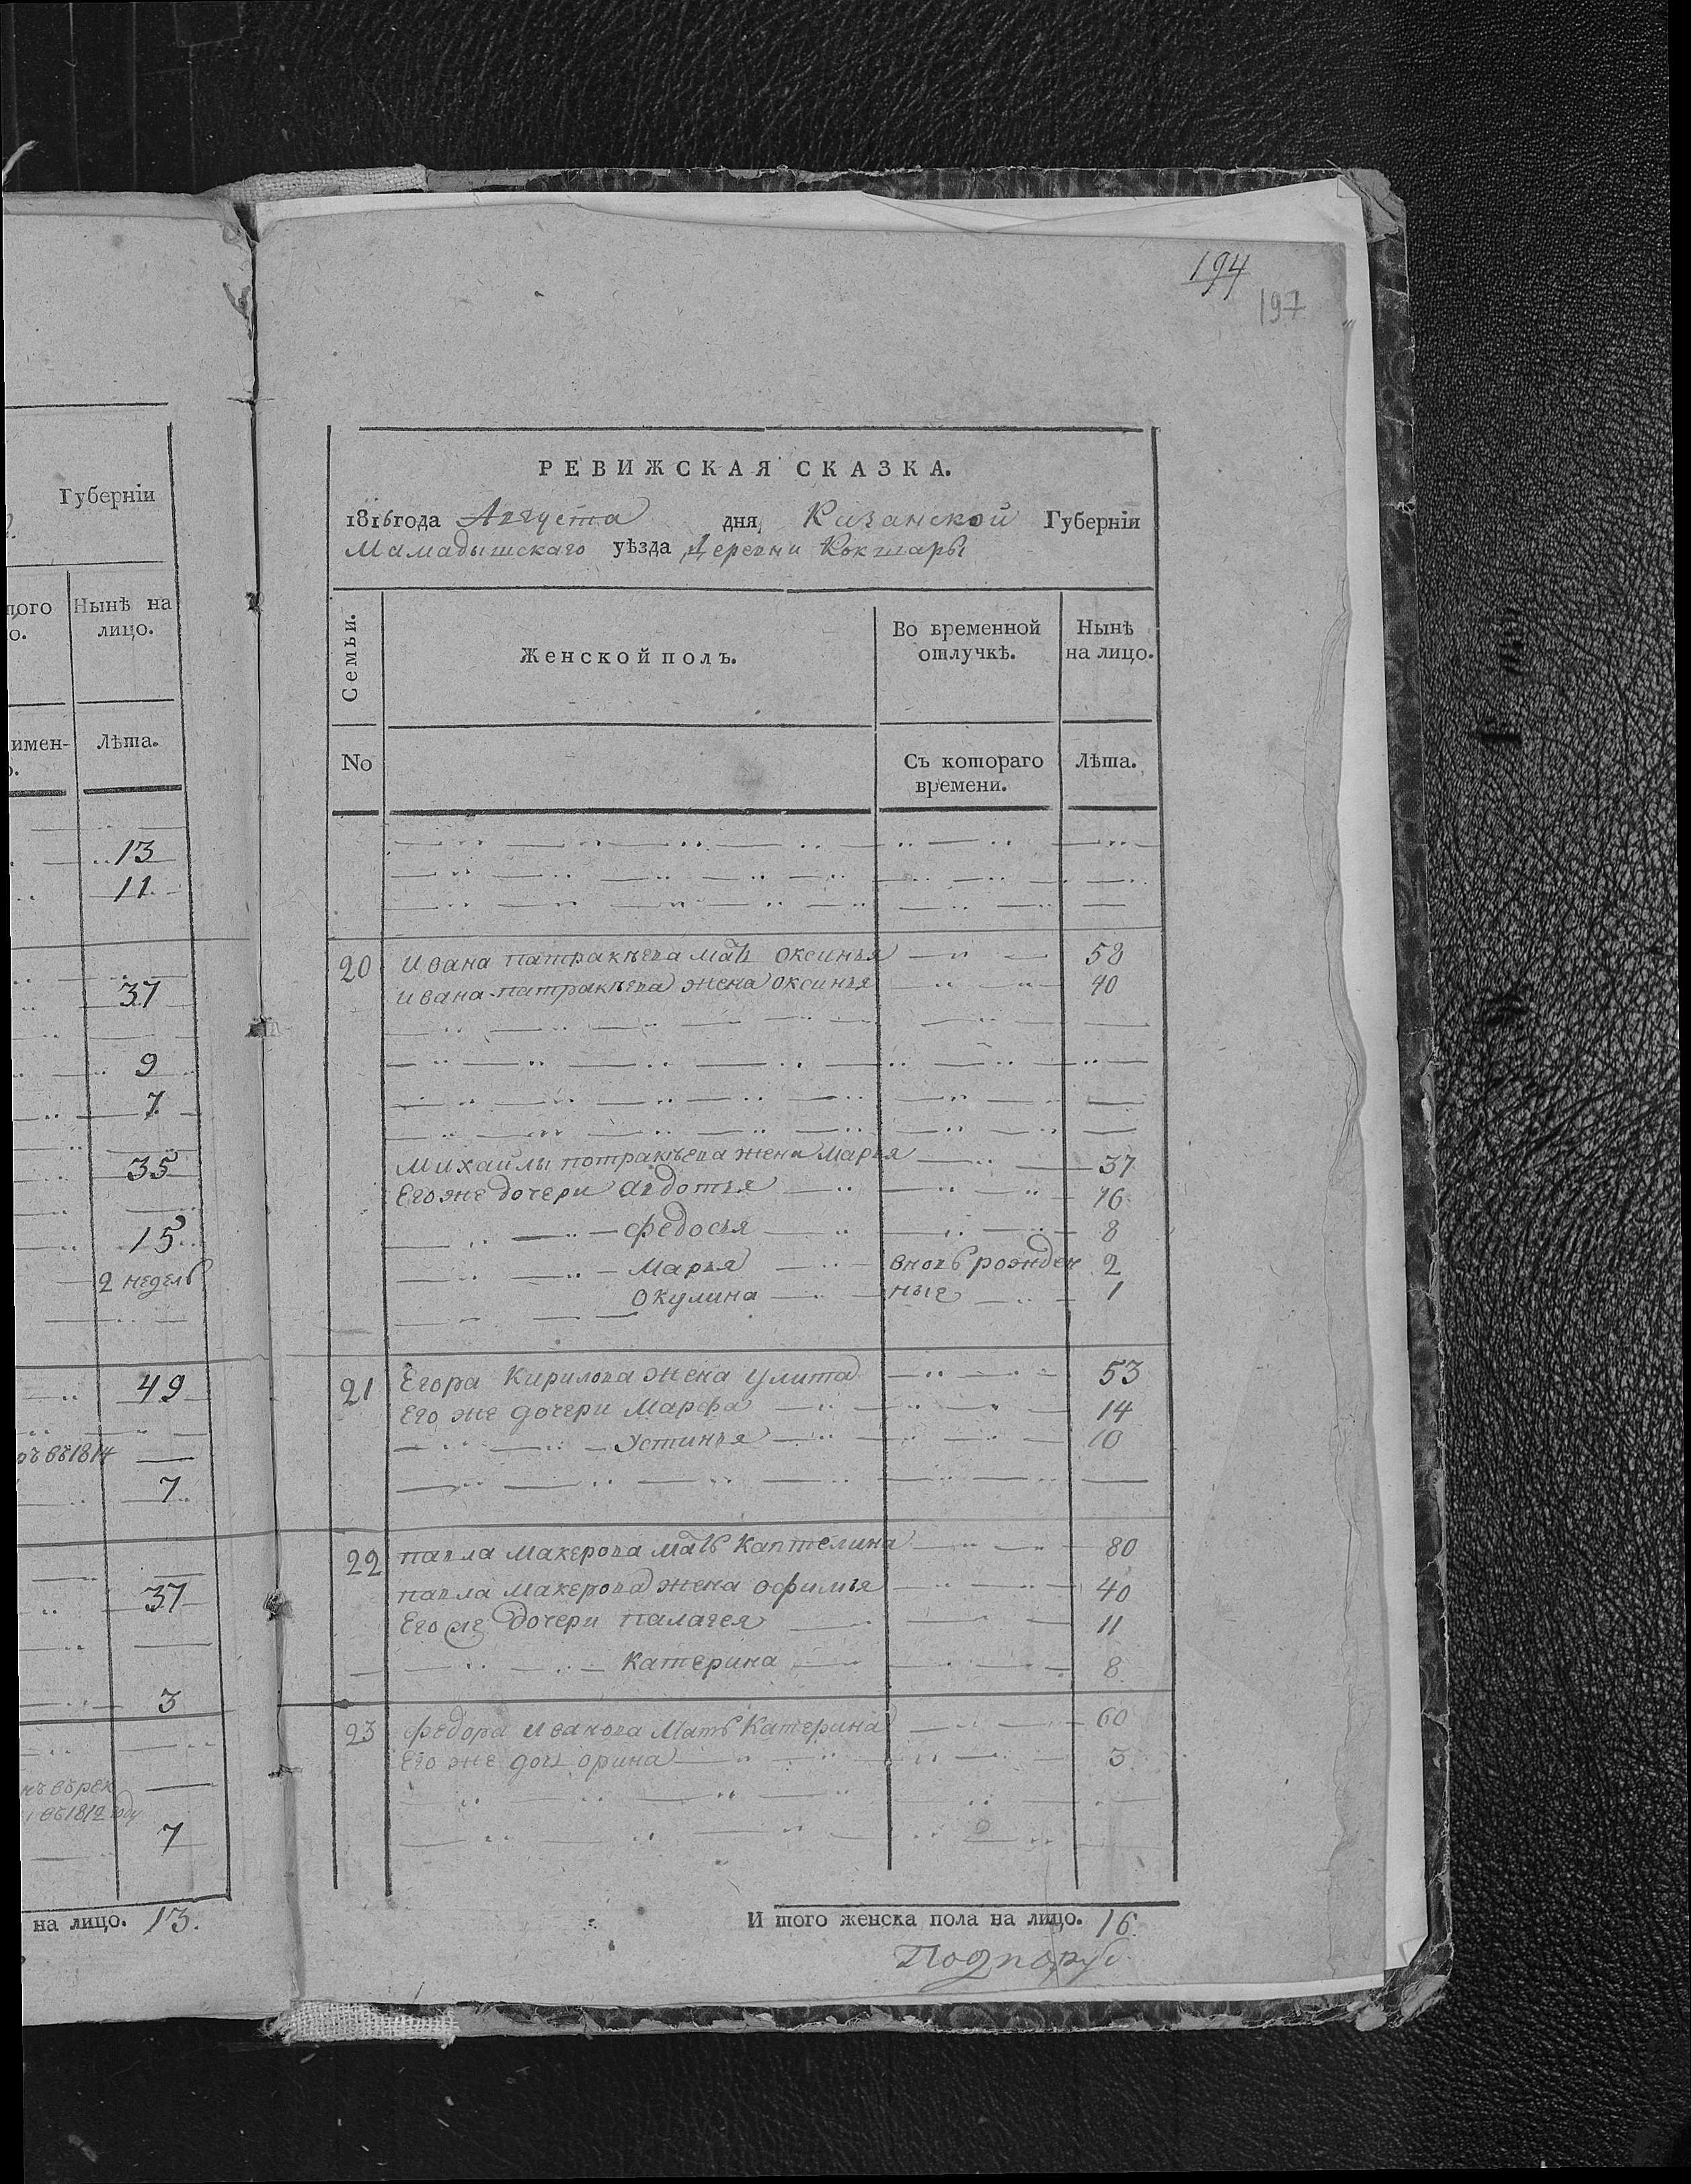 194
197
Губерніи
Нынѣ на
лицо.
имен-
Лѣта.
13
11
37
9
7
35
15
2 недель
49
въ 1814
7
37
3
въ 1812 году
7
на лицо. 13.
РЕВИЖСКАЯ СКАЗКА.
1816 года Августа дня, Казанской Губерніи
Мамадышскаго уѣзда Деревни Кокшары
Семьи.
Женской полъ.
Во временной
отлучкѣ.
Нынѣ
на лицо.
No
Съ котораго
времени.
Лѣта.
20 Ивана патракѣева мать оксинья 58
Ивана патракѣева жена оксинья 40
Михаилы потракѣева жена Марья 37
Его же дочери Авдотья 16
Федосья 8
Марья вновь рожден 2
Окулина ные 1
21 Егора Кирилова жена Улита 53
Его же дочери Марфа 14
Устинья 10
22 павла Макерова мать Каптелина 80
павла Макерова жена офимья 40
Его же дочери палагея 11
Катерина 8
23 федора Иванова Мать Катерина 60
Его же дочь орина 3
И того женска пола на лицо. 16.
Подпору